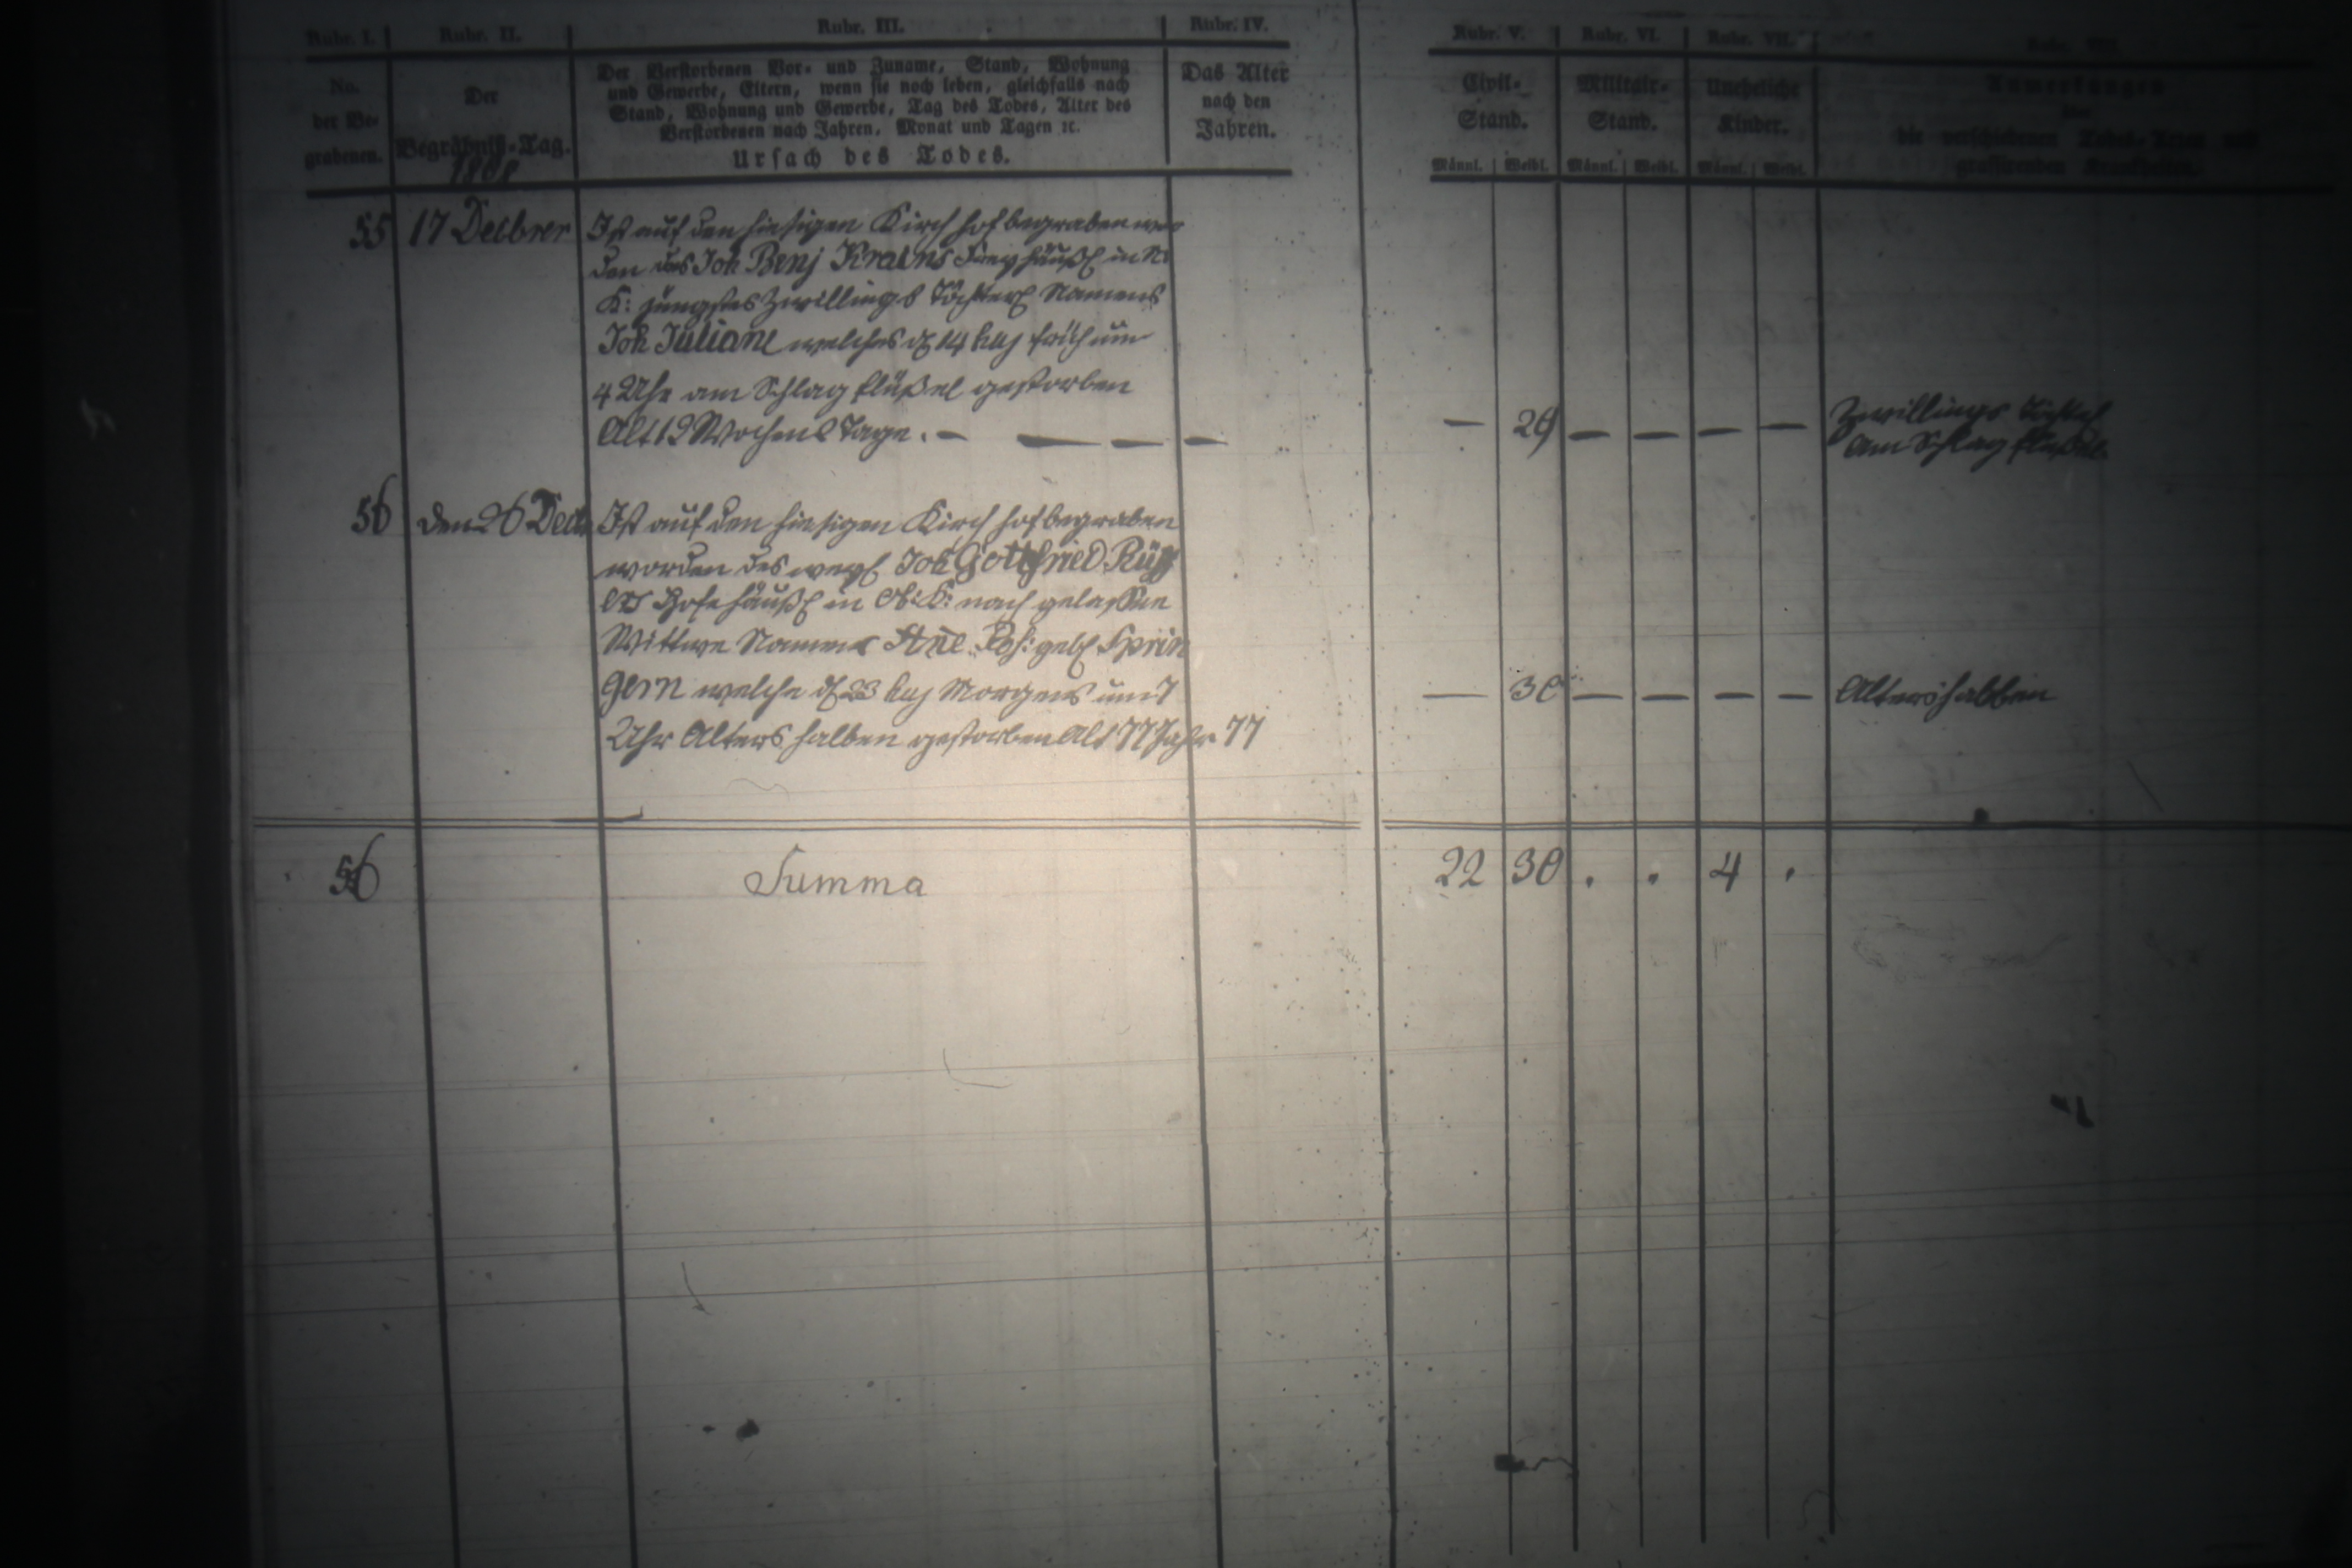 Rubr. I. Rubr. II. Rubr. III. Rubr. IV. Rubr. V. Rubr. VI. Rubr. VII.
No.
der Be-
grabenen.
Der
Begräbniß-Tag.
Der Verstorbenen Vor- und Zuname, Stand, Wohnung
und Gewerbe, Eltern, wenn sie noch leben, gleichfalls nach
Stand, Wohnung und Gewerbe, Tag des Todes, Alter des
Verstorbenen nach Jahren, Monat und Tagen ꝛc.
Ursach des Todes.
Das Alter
nach den
Jahren.
Civil-
Stand.
Männl. Weibl.
Militair-
Stand.
Männl. Weibl.
Uneheliche
Kinder.
Männl. Weibl.
Anmerkungen
die verschiedenen Todes-Arten und
grassirenden Krankheiten.
55 17 Decbrer Ist auf den hiesigen Kirchhof begraben wor
den des Joh Benj Kraûns Freyhäusl in N
K: jüngstes Zwillings Töchterl Namens
Joh Juliane welches d 14 huj früh um
4 Uhr am Schlagflußel gestorben
Alt 12 Wochen Tage. — — — — — 29 — — — — Zwillings Töchterl
Am Schlagflußel
56 den 26 Dec Ist auf den hiesigen Kirchhof begraben
worden des weyl Joh Gottfried
Hofehäusl in Ob: K: nachgelaßene
Wittwe Namens Ane Ros: geb Sprin
gern welche d 23 huj Morgens um 7 — 30 — — — — Altershalben
Uhr Alters halben gestorben Alt 77 Jahr 77
56 Summa 22 30 . . 4 .